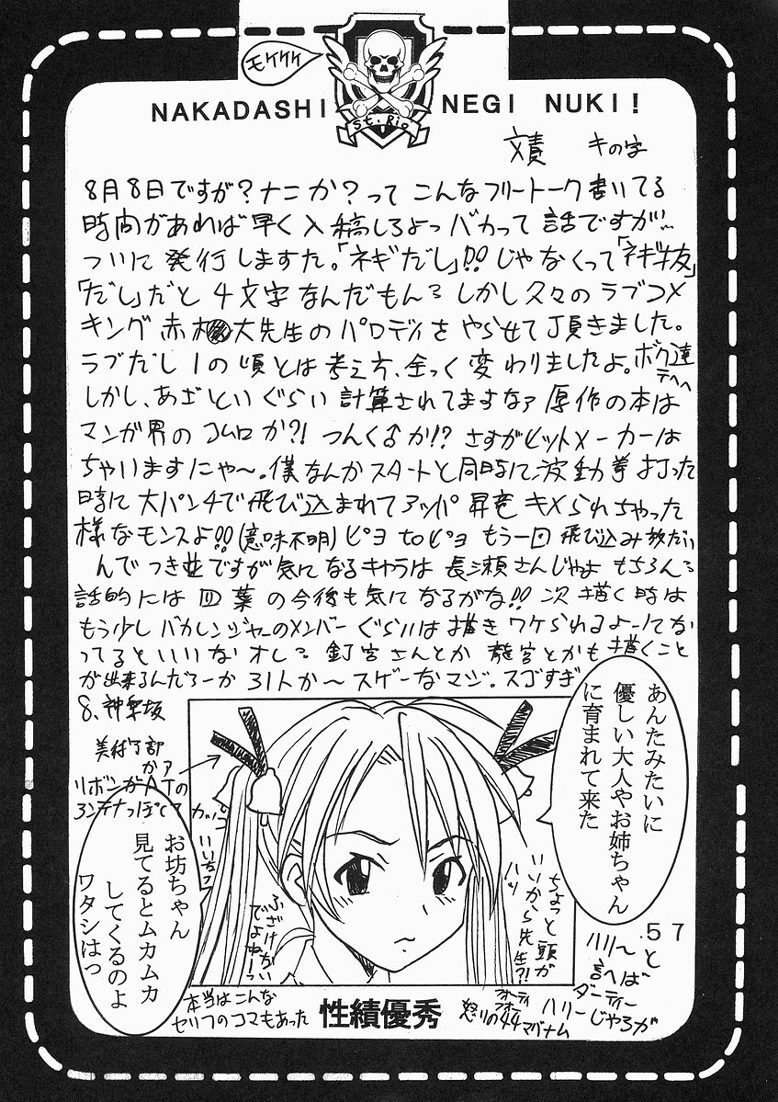 モケケケ
St. Rio
NAKADASHI NEGI NUKI!
文責 キの字
8月8日ですが?ナニか?って こんなフリートーク書いてる
時間があれば早く入稿しろよっバカって話ですが…
ついに発行しますた。「ネギだし」!!じゃなくって「ネギ抜」
「だし」だと4文字なんだもん〜しかし久々のラブコメ
キング赤松大先生のパロディをやらせて頂きました。
ラブだし1の頃とは考え方、全っく変わりましたよ。ボク達
テヘヘ
しかし、あざといぐらい計算されてますなァ原作の本は
マンガ界のコムロか?!つんく♂か!?さすがヒットメーカーは
ちゃいますにゃ〜。僕なんかスタートと同時に波動拳打った
時に大パンチで飛び込まれてアッパ昇竜キメられちゃった
様なモンスよ!!(意味不明)ピヨtoピヨもう一回飛び込み放だい
んでつき並ですが気になるキャラは長瀬さんじゃよもちろん〜
話的には四葉の今後も気になるがな!!次描く時は
もう少しバカレンジャーのメンバーぐらいは描きワケられるよーにな
ってるといいなオレ〜釘宮さんとか龍宮とかも描くこと
が出来るんだろーか31人か〜スゲーなマジ。スゴすぎ
8、神楽坂
美術部
かァ
リボンがATの
アンテナっぽくて
カッコ
いいぢょ
あんたみたいに
優しい大人やお姉ちゃん
に育まれて来た
ちょっと頭が
いいから先生?!
ハン
ふざけない
でよねー!
お坊ちゃん
見てるとムカムカ
してくるのよ
ワタシはっ
57
ハリーと
言へば
ダーティー
ハリーじゃろが
フォーティ
フォー
怒りの44マグナム
本当はこんな
セリフのコマもあった
性績優秀